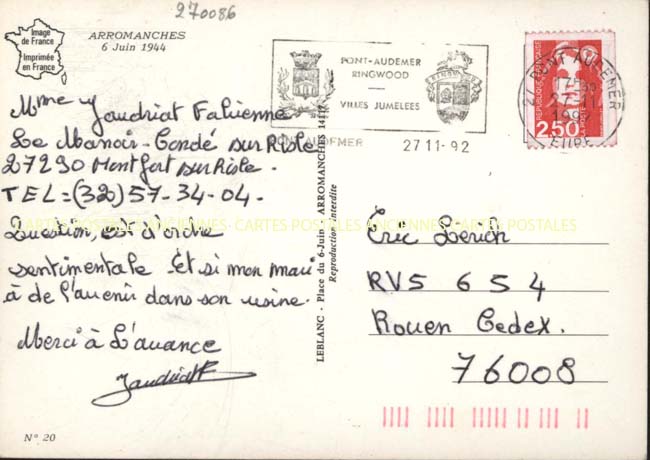 270086
Image
de France
Imprimée
en France
ARROMANCHES
6 Juin 1944
Mme Jaudriat Fabienne
Le Manoir-Condé sur Risle
27290 Montfort sur Risle.
TEL=(32) 57-34-04.
Question, est d'ordre
sentimentale Et si mon mari
à de l'avenir dans son usine.
Merci à L'avance
JaudriatF
N° 20
LEBLANC - Place du 6-Juin - ARROMANCHES 14117
Reproduction interdite
PONT-AUDEMER
RINGWOOD
VILLES JUMELEES
PONT AUDEMER
27 11- 92
27 PONT AUDEMER
EURE
REPUBLIQUE FRANÇAISE
LA POSTE
2,50
Eric
RV5 654
Rouen Cedex.
76008
CARTES POSTALES ANCIENNES CARTES POSTALES ANCIENNES CARTES POSTALES